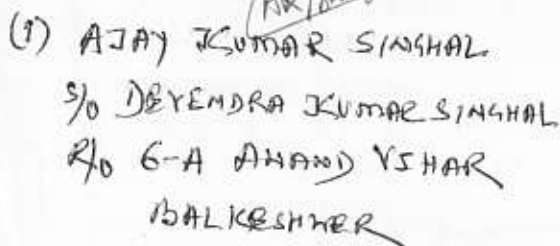 (1) AJAY KUMAR SINGHAL
S/o DEVENDRA KUMAR SINGHAL
R/o 6-A ANAND VIHAR
BALKESHWER